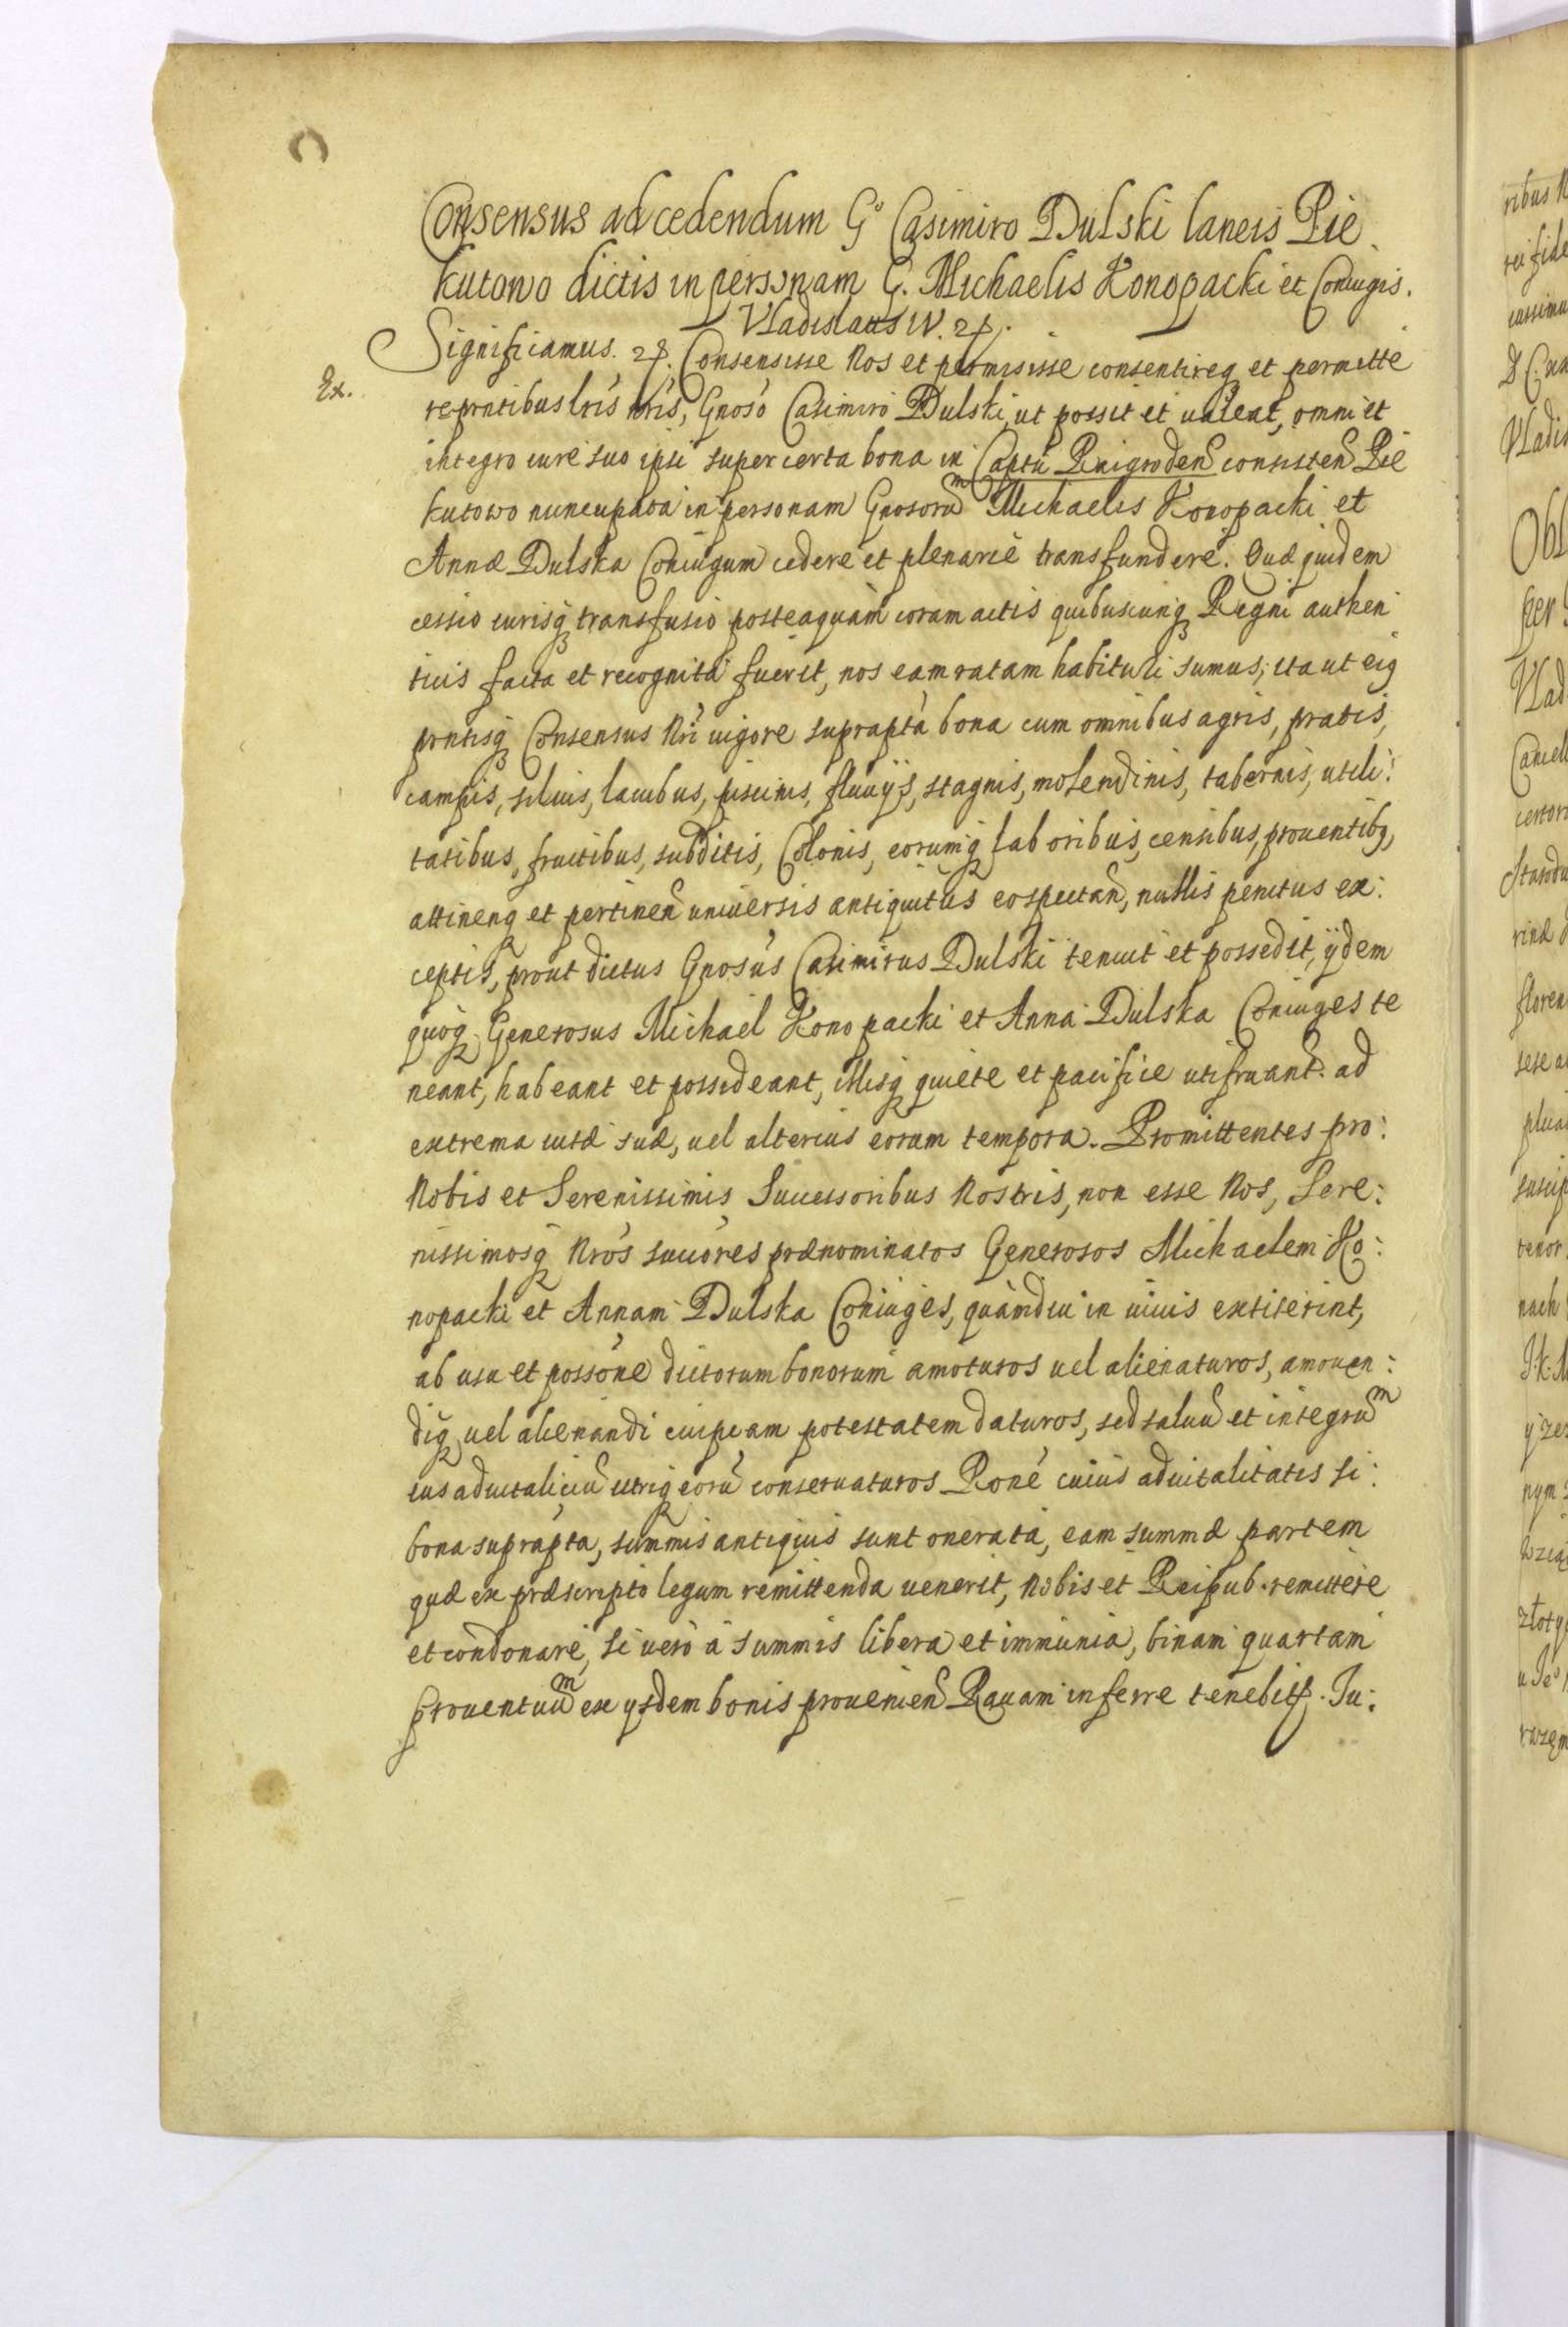 Consensus ad cedendum G° Casimiro Dulski laneis Pie
kutowo dictis in personam G. Michaelis Konopacki et Coniugis.
Vladislaus IV. etc.
Significamus. etc. Consensisse Nos et permisisse consentireq et permitte
Ex.
re prntibus lris nris, Gnoso Casimiro Dulski, ut possit et ualeat, omni et
integro iure suo ipsi super certa bona in Captu Knigroden consisten Pie
kutowo nuncupata in personam Gnosorum Michaelis Konopacki et
Annæ Dulska Coniugum cedere et plenarie transfundere. Quæ quidem
cessio iurisq transfusio posteaquàm coram actis quibuscunq Regni authen
ticis facta et recognita fuerit, nos eam ratam habituri sumus, ita ut eiq
prntisq Consensus Nri uigore suprapta bona cum omnibus agris, pratis,
campis, siluis, lacubus, piscinis, fluuijs, stagnis, molendinis, tabernis, utili:
tatibus, fructibus, subditis, Colonis, eorumq laboribus, censibus, prouentibq,
attinenq et pertinen uniuersis antiquitùs eo spectan, nullis penitus ex:
ceptis, prout dictus Gnosus Casimirus Dulski tenuit et possedit, ijdem
quoq Generosus Michaël Konopacki et Anna Dulska Coniuges te
neant, habeant et possideant, illisq quiete et pacifice utifruant. ad
extrema uitæ suæ, uel alterius eorum tempora. Promittentes pro:
Nobis et Serenissimis Successoribus Nostris, non esse Nos, Sere:
nissimosq Nros succores prænominatos Generosos Michaelem Ko:
nopacki et Annam Dulska Coniuges, quàmdiu in uiuis extiterint,
ab usu et possone dictorum bonorum amoturos uel alienaturos, amouen:
diq uel alienandi cuipiam potestatem daturos, sed saluu et integrum
ius aduitaliciu utriq eoru conseruaturos Rone cuius aduitalitatis si
bona suprapta, summis antiquis sunt onerata, eam summæ partem
quæ ex præscripto legum remittenda uenerit, Nobis et Reipub. remittere
et condonare, si uero à summis libera et immunia, binam quartam
prouentuum ex ysdem bonis prouenien Rauam inferre tenebit. Iu: